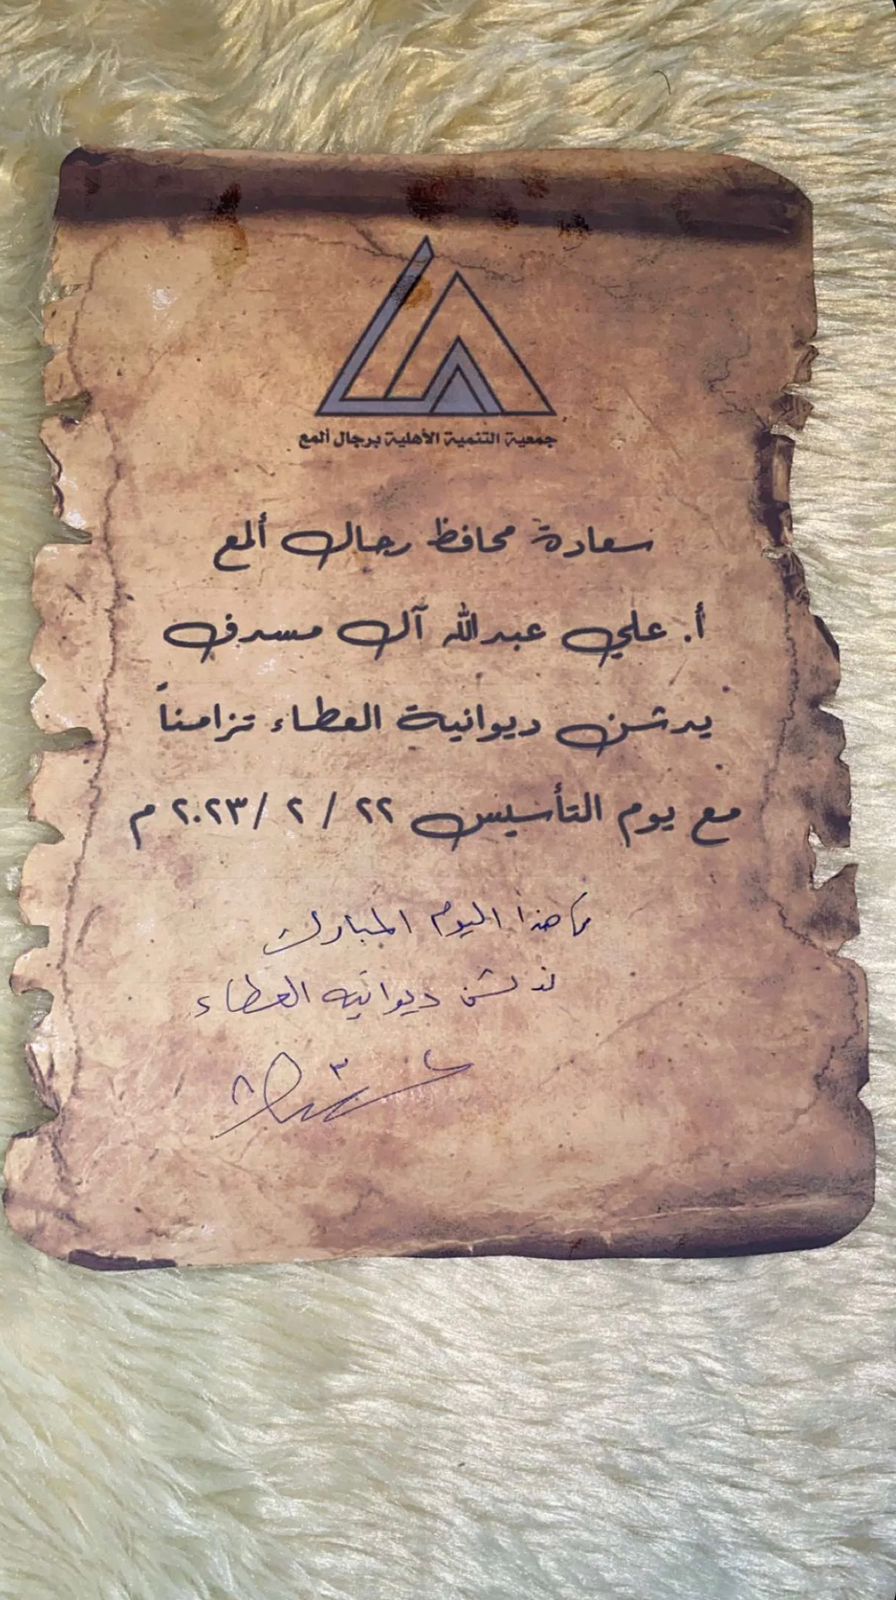 جمعية التنمية الأهلية برجال ألمع
سعادة محافظ رجال ألمع
أ. علي عبدالله آل مسدف
يدشن ديوانية العطاء تزامناً
مع يوم التأسيس ٢٢ / ٢ / ٢٠٢٣ م
هذا اليوم المبارك
ندشن ديوانية العطاء